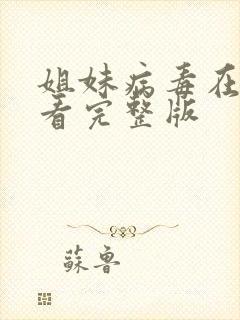 姐妹病毒在
看完整版
蘇魯